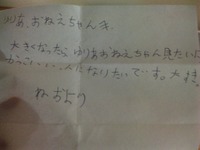 りあ おねえちゃんき
大きくなったら、ゆりああおねえちゃんみたいに
かっこいい、人になりたいです。大好き
ねおより